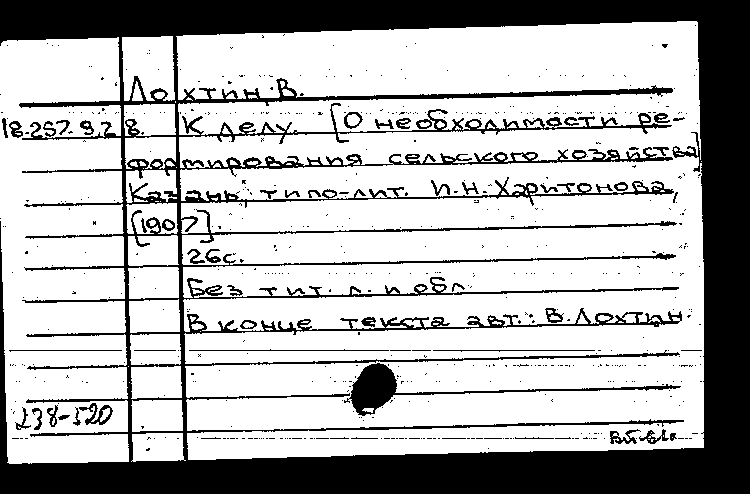 Лохтин, В.
18.257.9.28. К делу. [О необходимости ре-
формирования сельского хозяйства]
Казань, типо-лит. И.Н. Харитонова,
[1907].
26с.
Без тит. л. и обл.
В конце текста авт.: В. Лохтин.
238-520